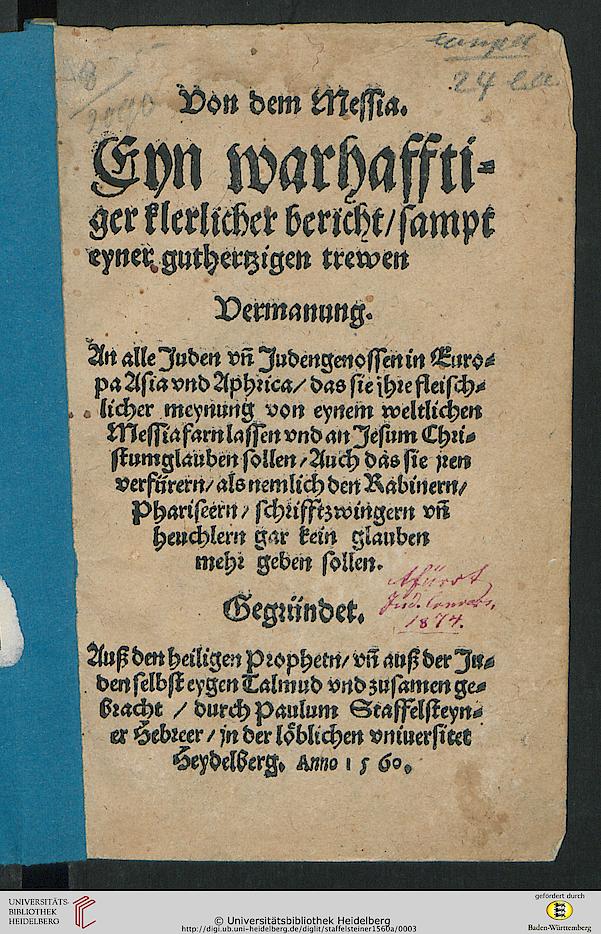 Von dem Messia.
Eyn warhaffti-
ger klerlicher bericht/ sampt
eyner guthertzigen trewen
Vermanung.
An alle Juden vñ Judengenossen in Euro-
pa Asia vnd Aphrica/ das sie jhre fleisch-
licher meynung von eynem weltlichen
Messia farn lassen vnd an Jesum Chri-
stum glauben sollen/ Auch das sie jren
verfürern/ als nemlich den Rabinern/
Phariseern/ schrifftzwingern vñ
heuchlern gar kein glauben
mehr geben sollen.
Gegründet.
1874.
Auß den heiligen Prophetn/ vñ auß der Ju-
den selbst eygen Talmud vnd zusamen ge-
bracht / durch Paulum Staffelsteyn-
er Hebreer/ jn der löblichen vniuersitet
Heydelberg. Anno 1560.
UNIVERSITÄTS-
BIBLIOTHEK
HEIDELBERG
© Universitätsbibliothek Heidelberg
http://digi.ub.uni-heidelberg.de/diglit/staffelsteiner1560a/0003
gefördert durch
Baden-Württemberg